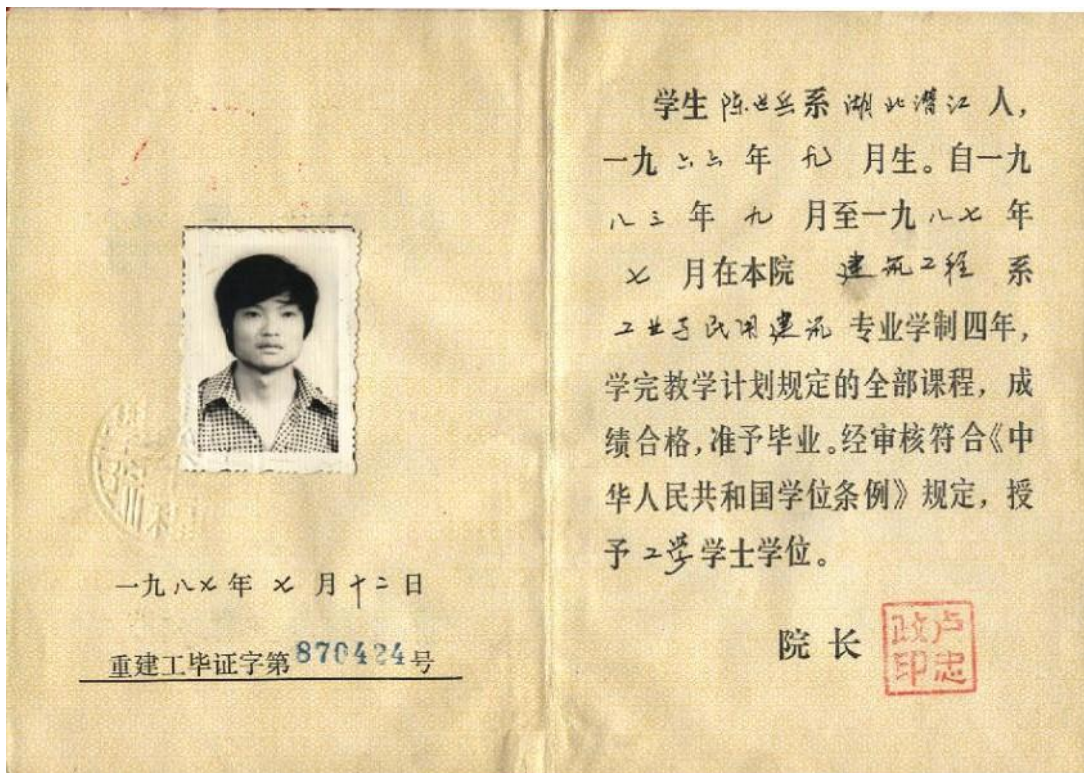 一九八七年七月十二日
重建工毕证字第870424号
学生陈世兵系湖北潜江人,
一九六六年九月生。自一九
八三年九月至一九八七年
七月在本院 建筑工程 系
工业与民用建筑 专业学制四年,
学完教学计划规定的全部课程, 成
绩合格, 准予毕业。经审核符合《中
华人民共和国学位条例》规定, 授
予工学学士学位。
院长
卢忠政印